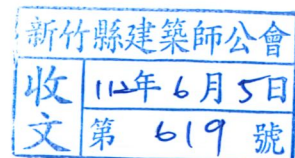 新竹縣建築師公會
收文
112年6月5日
第 619 號